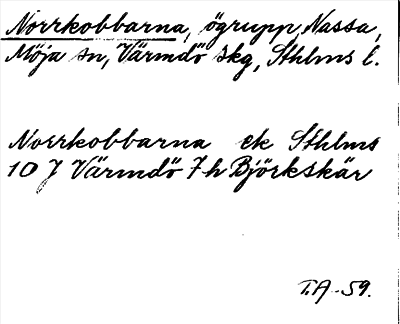 Norrkobbarna, ögrupp, Nassa,
Möja sn, Värmdö skg, Sthlms l.
Norrkobbarna ek Sthlms
10 J Värmdö 7 h Björkskär
T.A -59.